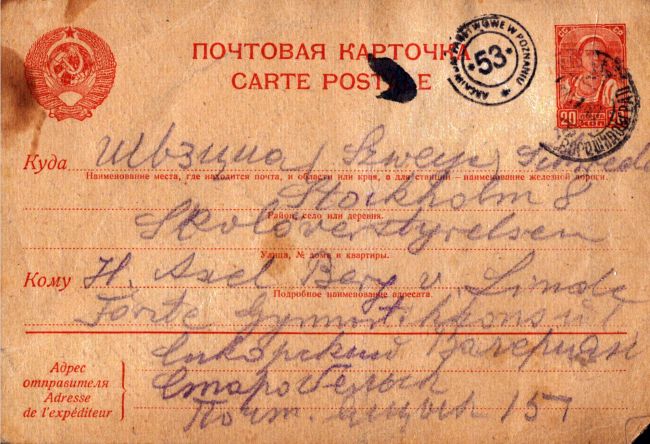 ПОЧТОВАЯ КАРТОЧКА
CARTE POSTALE
ARCHIWUM PAŃSTWOWE W POZNANIU
53
20
КОП
ВОРОШИЛОВГРАД
Куда Szwecja
Наименование места, где находится почта, и области или края, а для станции — наименование железной дороги.
Stockholm 8
Район, село или деревня.
Skolöverstyrelsen
Улица, № дома и квартиры.
Кому H. Axel Berg v. Linde
Подробное наименование адресата.
Förste
Сикорский Валериан
Адрес
отправителя
Adresse
de l'expéditeur
Старобельск
Почт. ящик 15